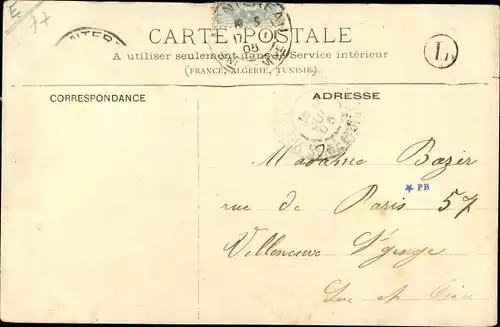 E
77
CARTE POSTALE
A utiliser seulement dans le Service intérieur
(FRANCE, ALGÉRIE, TUNISIE)
L
CORRESPONDANCE
ADRESSE
Madame Bazir
rue de Paris 57
PB
Villeneuve St Georges
Seine et Oise